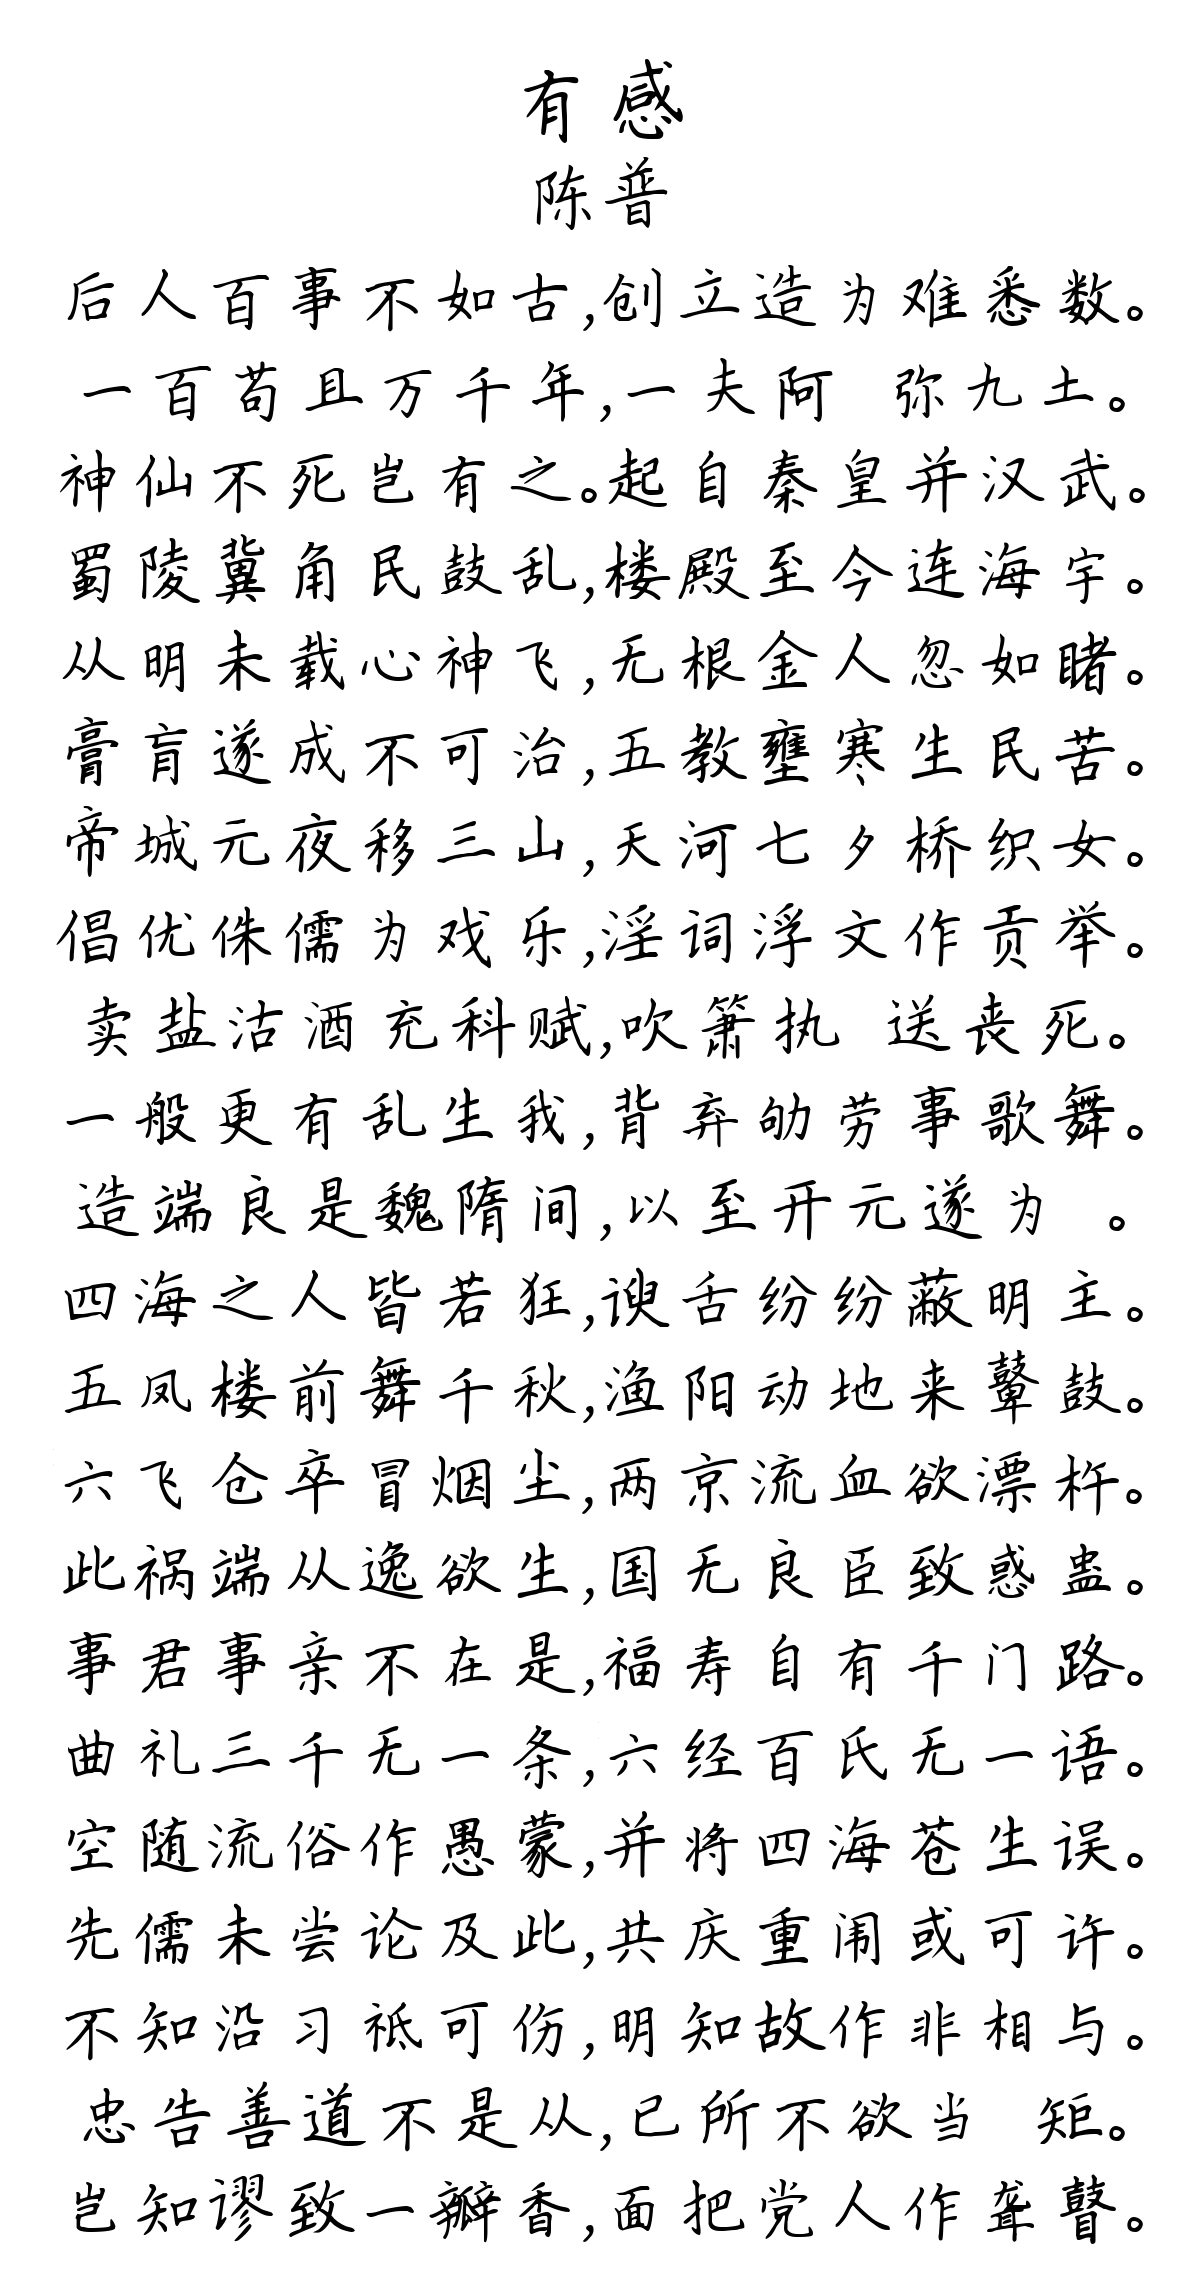 有感
陈普
后人百事不如古,创立造为难悉数。
一百苟且万千年,一夫阿 弥九土。
神仙不死岂有之。起自秦皇并汉武。
蜀陵冀角民鼓乱,楼殿至今连海宇。
从明未载心神飞,无根金人忽如睹。
膏肓遂成不可治,五教壅寒生民苦。
帝城元夜移三山,天河七夕桥织女。
倡优侏儒为戏乐,淫词浮文作贡举。
卖盐沽酒充科赋,吹箫执 送丧死。
一般更有乱生我,背弃劬劳事歌舞。
造端良是魏隋间,以至开元遂为 。
四海之人皆若狂,谀舌纷纷蔽明主。
五凤楼前舞千秋,渔阳动地来鼙鼓。
六飞仓卒冒烟尘,两京流血欲漂杵。
此祸端从逸欲生,国无良臣致惑蛊。
事君事亲不在是,福寿自有千门路。
曲礼三千无一条,六经百氏无一语。
空随流俗作愚蒙,并将四海苍生误。
先儒未尝论及此,共庆重闱或可许。
不知沿习祗可伤,明知故作非相与。
忠告善道不是从,已所不欲当 矩。
岂知谬致一瓣香,面把党人作聋瞽。